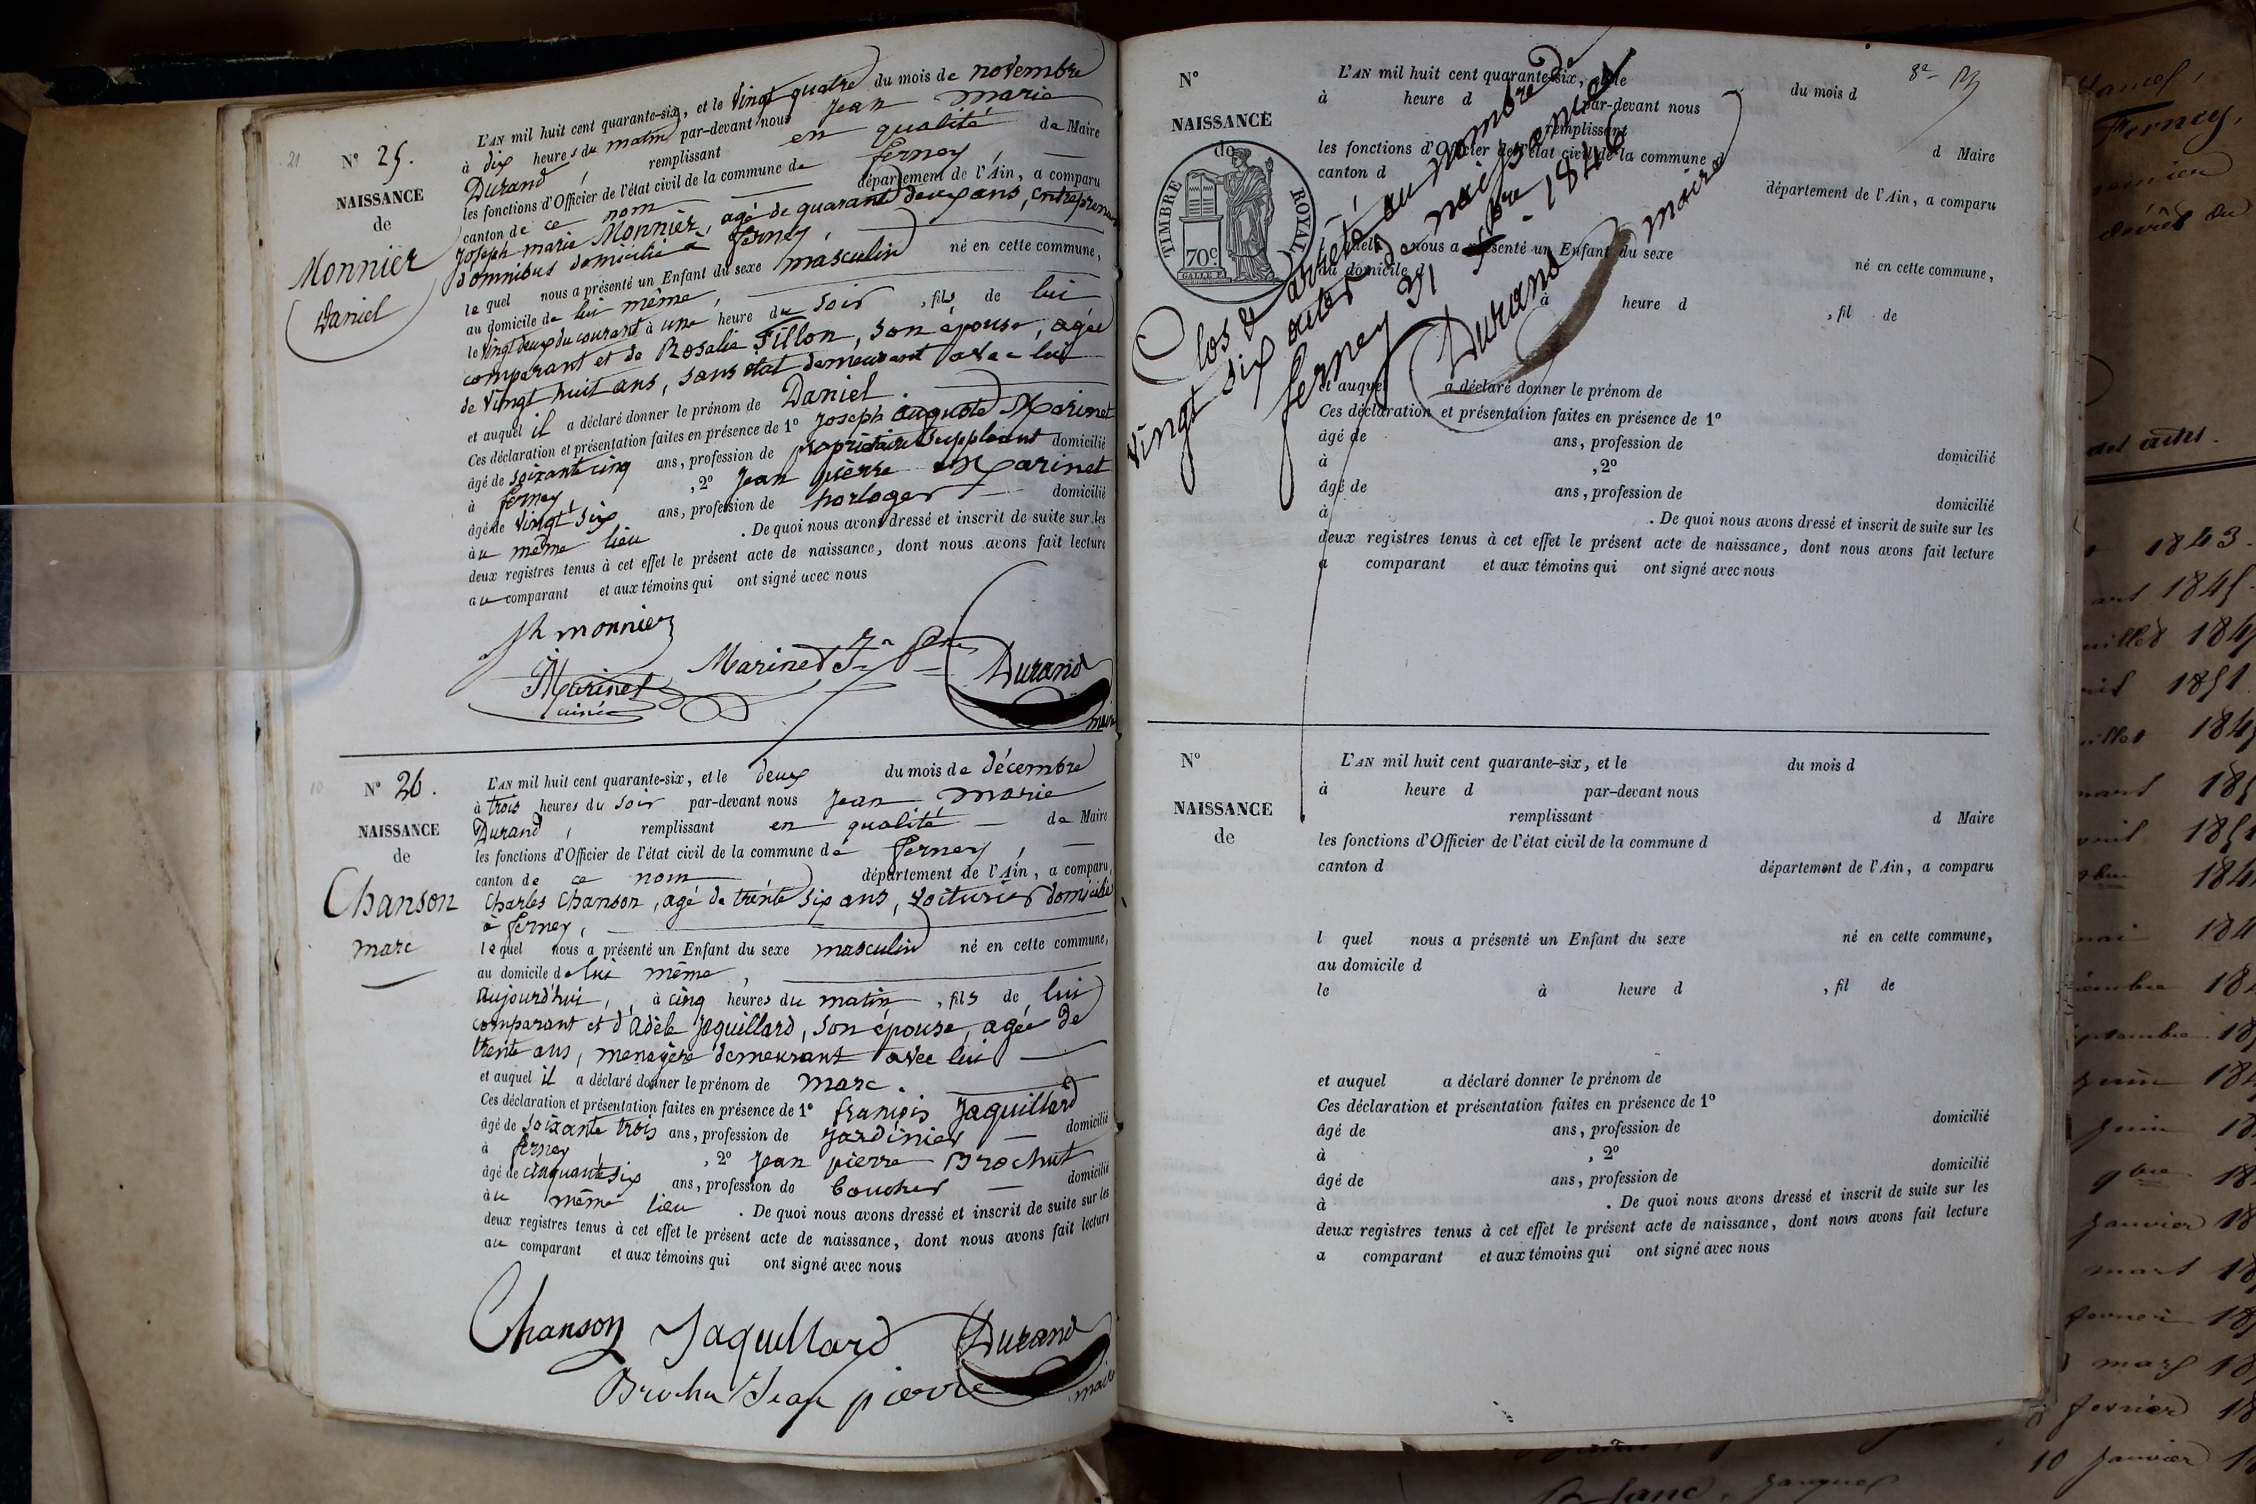 21
N° 25.
NAISSANCE
de
Monnier
Daniel
L'AN mil huit cent quarante-six, et le Vingt quatre du mois de novembre
à dix heures du matin par-devant nous Jean Marie
Durand, remplissant en qualité de Maire
les fonctions d'Officier de l'état civil de la commune de ferney,
canton de ce nom département de l'Ain, a comparu
Joseph marie Monnier, agé de quarante deux ans, Entrepreneur
d'omnibus domicilié à ferney,
lequel nous a présenté un Enfant du sexe masculin né en cette commune,
au domicile de lui même,
le vingt deux du courant à une heure du soir, fils de lui
comparant et de Rosalie Fillon, son épouse, agée
de vingt huit ans, sans état demeurant avec lui
et auquel il a déclaré donner le prénom de Daniel
Ces déclaration et présentation faites en présence de 1° Joseph auguste Marinet
âgé de soixante cinq ans, profession de propriétaire suppléant domicilié
à ferney, 2° Jean pierre Marinet
âgé de vingt six ans, profession de horloger domicilié
au même lieu. De quoi nous avons dressé et inscrit de suite sur les
deux registres tenus à cet effet le présent acte de naissance, dont nous avons fait lecture
au comparant et aux témoins qui ont signé avec nous
Jh monnier
Marinet Jn Pre
Marinet
ainé
Durand
maire
10
N° 26.
NAISSANCE
de
Chanson
marc
L'AN mil huit cent quarante-six, et le deux du mois de décembre
à trois heures du soir par-devant nous Jean Marie
Durand, remplissant en qualité de Maire
les fonctions d'Officier de l'état civil de la commune de ferney,
canton de ce nom département de l'Ain, a comparu
Charles Chanson, agé de trente six ans, voiturier domicilié
à ferney,
lequel nous a présenté un Enfant du sexe masculin né en cette commune,
au domicile de lui même,
aujourd'hui, à cinq heures du matin, fils de lui
comparant et d'adèle Jaquillard, son épouse, agée de
trente ans, menagère demeurant avec lui
et auquel il a déclaré donner le prénom de marc.
Ces déclaration et présentation faites en présence de 1° françois Jaquillard
âgé de soixante trois ans, profession de jardinier domicilié
à ferney, 2° Jean pierre Brochut
âgé de cinquante six ans, profession de boucher domicilié
au même lieu. De quoi nous avons dressé et inscrit de suite sur les
deux registres tenus à cet effet le présent acte de naissance, dont nous avons fait lecture
au comparant et aux témoins qui ont signé avec nous
Chanson Jaquillard Durand
maire
Brochu Jean pierre
8e
N°
NAISSANCE
de
TIMBRE ROYAL
70c
L'AN mil huit cent quarante-six, et le du mois d
à heure d par-devant nous
remplissant d Maire
les fonctions d'Officier de l'état civil de la commune d
canton d département de l'Ain, a comparu
l quel nous a présenté un Enfant du sexe né en cette commune,
au domicile d
à heure d, fil de
et auquel a déclaré donner le prénom de
Ces déclaration et présentation faites en présence de 1°
âgé de ans, profession de domicilié
à, 2°
âgé de ans, profession de domicilié
à. De quoi nous avons dressé et inscrit de suite sur les
deux registres tenus à cet effet le présent acte de naissance, dont nous avons fait lecture
a comparant et aux témoins qui ont signé avec nous
Clos & arrêté au nombre de
vingt six actes de naissances
ferney 31 Xbre 1846
Durand maire
N°
NAISSANCE
de
L'AN mil huit cent quarante-six, et le du mois d
à heure d par-devant nous
remplissant d Maire
les fonctions d'Officier de l'état civil de la commune d
canton d département de l'Ain, a comparu
l quel nous a présenté un Enfant du sexe né en cette commune,
au domicile d
le à heure d, fil de
et auquel a déclaré donner le prénom de
Ces déclaration et présentation faites en présence de 1°
âgé de ans, profession de domicilié
à, 2°
âgé de ans, profession de domicilié
à. De quoi nous avons dressé et inscrit de suite sur les
deux registres tenus à cet effet le présent acte de naissance, dont nous avons fait lecture
a comparant et aux témoins qui ont signé avec nous
Ferney,
des actes.
1843.
1851
mars
juin
9bre
janvier
mars
fevrier
mars
fevrier
10 janvier